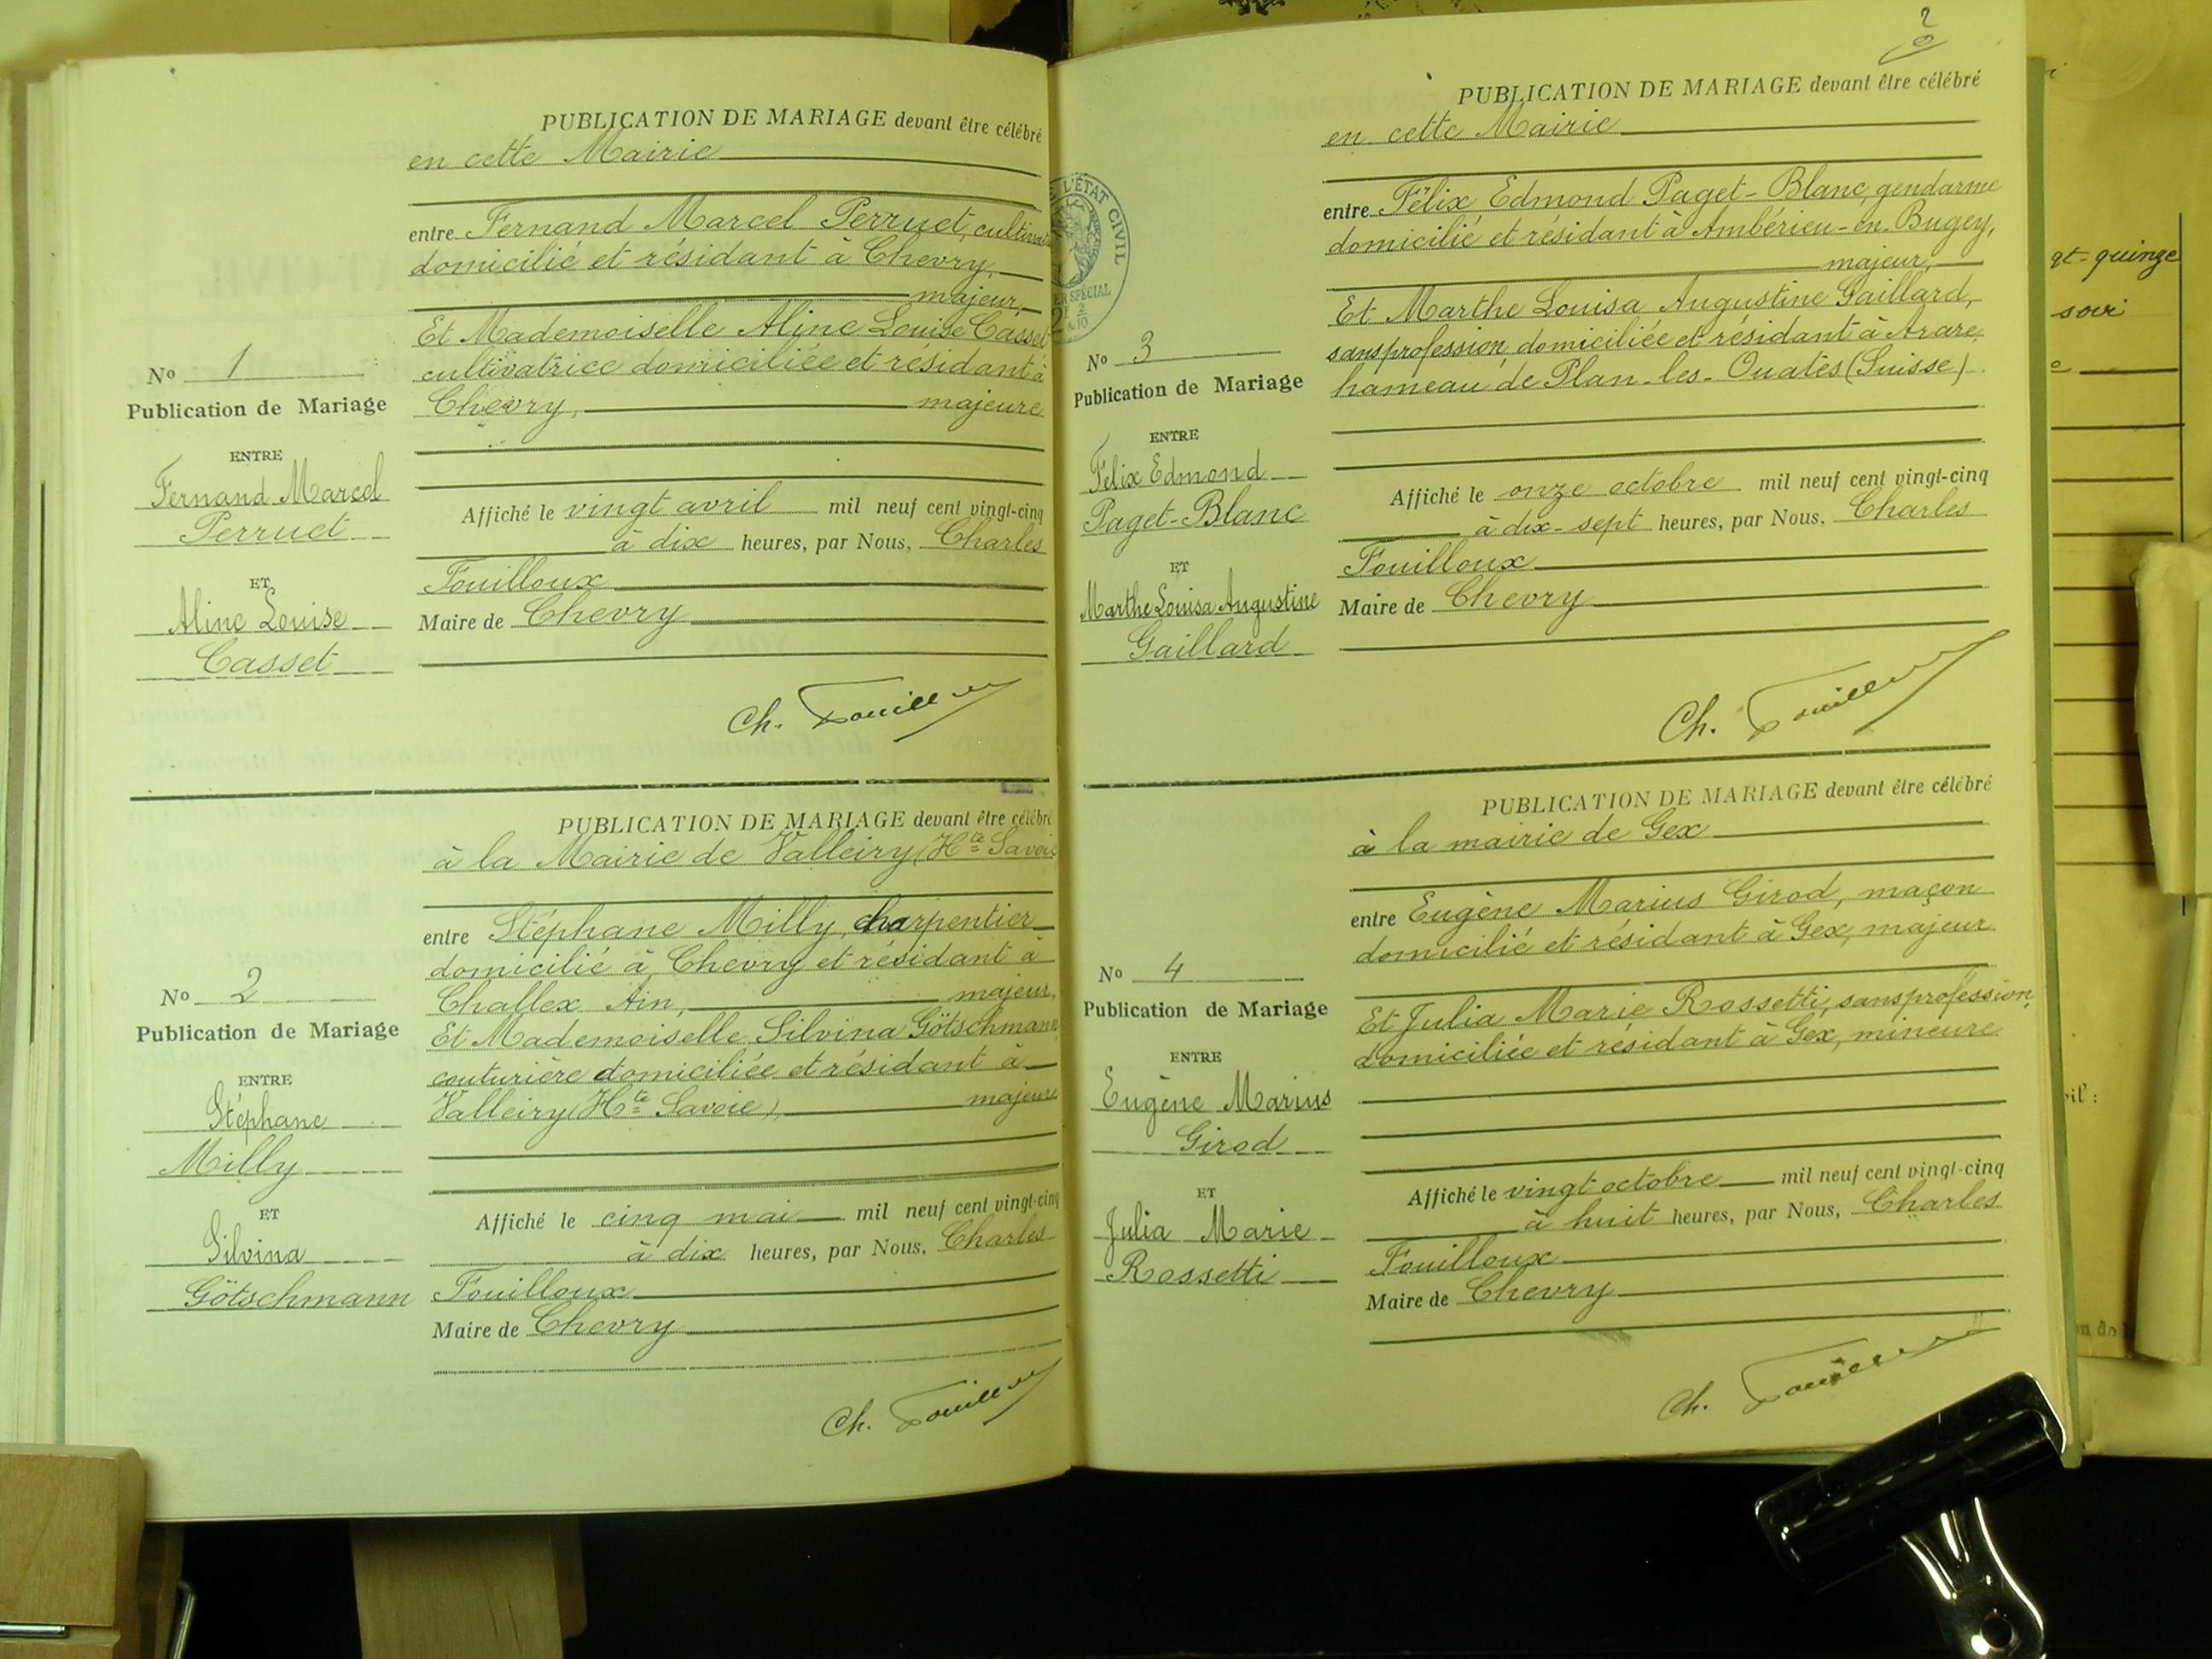 PUBLICATION DE MARIAGE devant être célébré
en cette Mairie
entre Fernand Marcel Perruet, cultivat
domicilié et résidant à Chevry,
majeur,
Et Mademoiselle Aline Louise Casset
cultivatrice domiciliée et résidant à
Chevry, majeure
No 1
Publication de Mariage
ENTRE
Fernand Marcel
Perruet
ET
Aline Louise
Casset
Affiché le vingt avril mil neuf cent vingt-cinq
à dix heures, par Nous, Charles
Fouilloux
Maire de Chevry
Ch. Fouilloux
PUBLICATION DE MARIAGE devant être célébré
à la Mairie de Valleiry (Hte Savoie
entre Stéphane Milly, charpentier
domicilié à Chevry et résidant à
Challex Ain, majeur,
Et Mademoiselle Silvina Götschmann
couturière domiciliée et résidant à
Valleiry (Hte Savoie), majeure
No 2
Publication de Mariage
ENTRE
Stéphane
Milly
ET
Silvina
Götschmann
Affiché le cinq mai mil neuf cent vingt-cinq
à dix heures, par Nous, Charles
Fouilloux
Maire de Chevry
Ch. Fouilloux
2
PUBLICATION DE MARIAGE devant être célébré
en cette Mairie
entre Félix Edmond Paget-Blanc, gendarme
domicilié et résidant à Ambérieu-en-Bugey,
majeur,
Et Marthe Louisa Augustine Gaillard,
sans profession, domiciliée et résidant à Arare,
hameau de Plan-les-Ouates (Suisse)
L'ÉTAT CIVIL
SPÉCIAL
No 3
Publication de Mariage
ENTRE
Félix Edmond
Paget-Blanc
ET
Marthe Louisa Augustine
Gaillard
Affiché le onze octobre mil neuf cent vingt-cinq
à dix-sept heures, par Nous, Charles
Fouilloux
Maire de Chevry
Ch. Fouilloux
PUBLICATION DE MARIAGE devant être célébré
à la mairie de Gex
entre Eugène Marius Girod, maçon
domicilié et résidant à Gex, majeur
Et Julia Marie Rossetti, sans profession,
domiciliée et résidant à Gex, mineure
No 4
Publication de Mariage
ENTRE
Eugène Marius
Girod
ET
Julia Marie
Rossetti
Affiché le vingt octobre mil neuf cent vingt-cinq
à huit heures, par Nous, Charles
Fouilloux
Maire de Chevry
Ch. Fouilloux
gt-quinze
soir